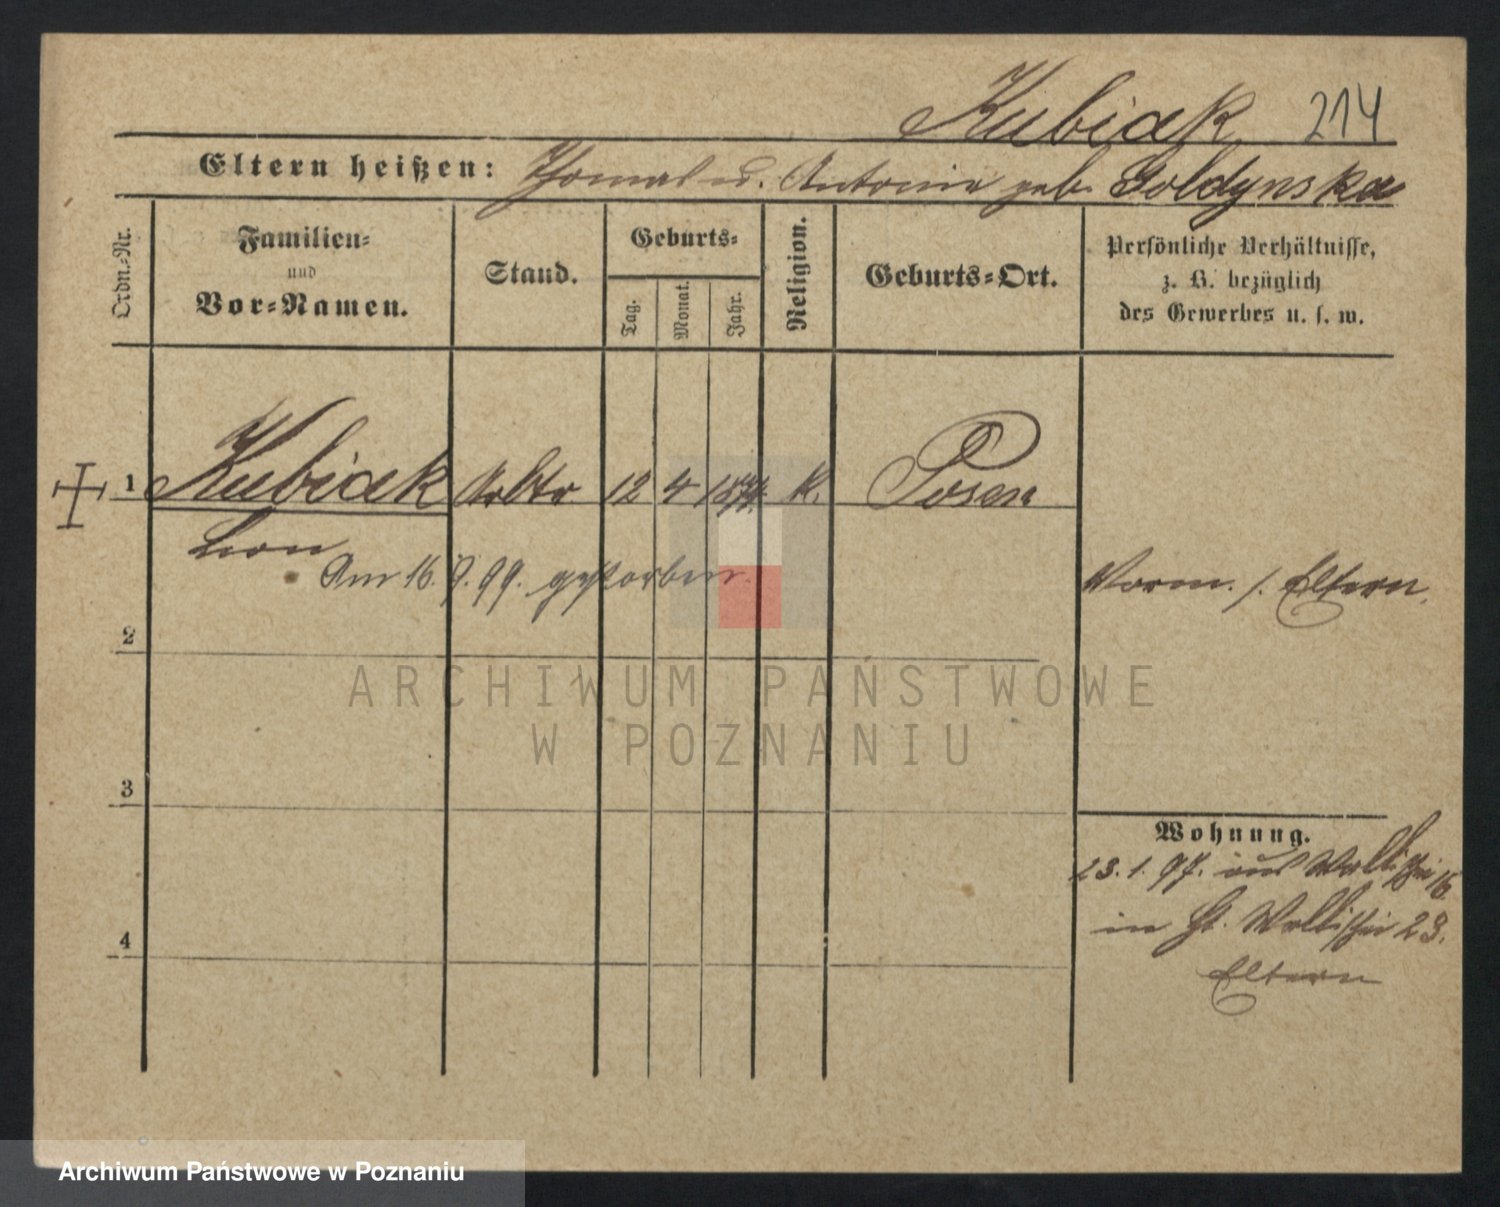 Kubiak 214
Eltern heißen: Thomas u. Antonie geb. Goldynska
Ordn.-Nr.
Familien-
und
Vor-Namen.
Stand.
Geburts-
Tag.
Monat.
Jahr.
Religion.
Geburts-Ort.
Persönliche Verhältnisse,
z. B. bezüglich
des Gewerbes u. s. w.
1 Kubiak Arbtr 12 4 K. Posen
Leon
Am 16. 99. gestorben.
Vorm. s. Eltern.
2
ARCHIWUM PAŃSTWOWE
W POZNANIU
3
Wohnung.
23. 1. 97. aus Wallischei 16
in St. Wallischei 23.
Eltern
4
Archiwum Państwowe w Poznaniu